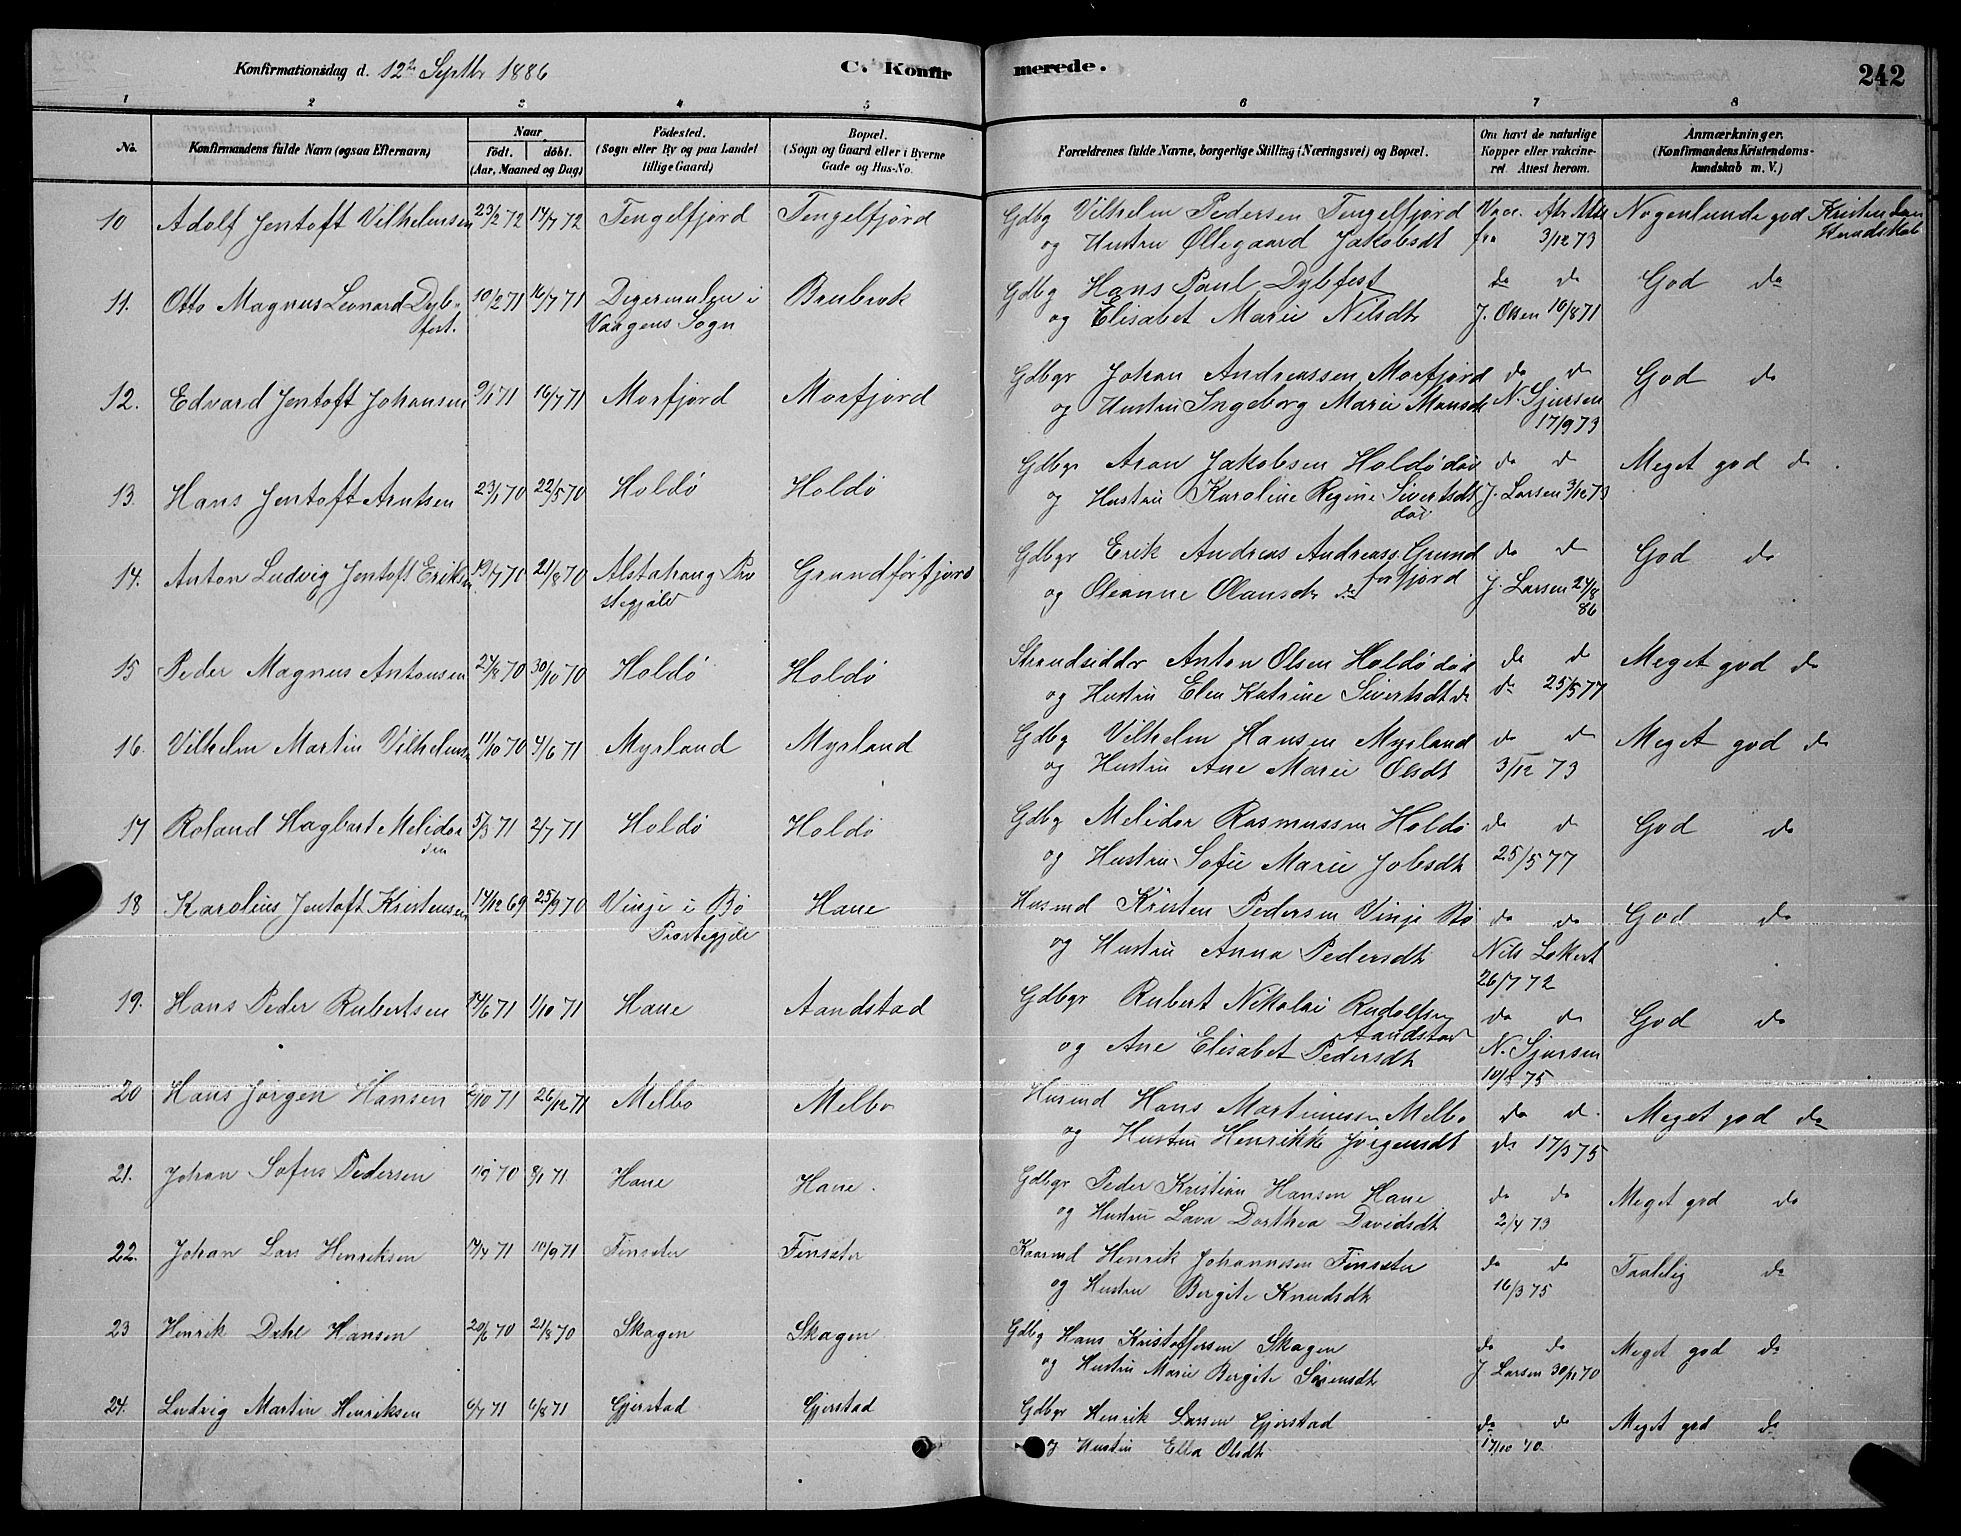 Konfirmationsdag d. 12te Septbr 1886
C. Konfirmerede.
242
1 2 3 4 5 6 7 8
No.
Konfirmandens fulde Navn (ogsaa Efternavn)
Naar
födt. döbt.
(Aar, Maaned og Dag)
Födested.
(Sogn eller By og paa Landet
tillige Gaard)
Bopæl.
(Sogn og Gaard eller i Byerne
Gade og Hus-No.
Forældrenes fulde Navne, borgerlige Stilling (Næringsvei) og Bopæl.
Om havt de naturlige
Kopper eller vakcine-
ret. Attest herom.
Anmærkninger.
(Konfirmandens Kristendoms-
kundskab m. V.)
10 Adolf Jentoft Vilhelmsen 23/2 72 14/7 72 Tengelfjord Tengelfjord Gdbg Vilhelm Pedersen Tengelfjord Nogenlunde god Kristendom
og Hustru Ollegaard Jakobsdt fra 3/12 73 Kundskab
11. Otto Magnus Leonard Dyb- 10/2 71 16/7 71 Digermulen i Brubrok Gdbg Hans Paul Dybfest do do God do
fest. Vaagens Sogn og Elisabet Marie Nilsdt J. Olsen 10/8 71
12. Edvard Jentoft Johansen 9/1 71 16/7 71 Morfjord Morfjord Gdbgr Johan Andreassen Morfjord do do God do
og Hustru Ingeborg Marie Monsdt N. Sjursen
17/9 73
13. Hans Jentoft Arntsen 23/1 70 22/5 70 Holdö Holdö Gdbgr Aron Jakobsen Holdö död do do Meget god do
og Hustru Karoline Regine Sivertsdt J. Larsen 3/12 73
död
14. Anton Ludvig Jentoft Eriksen 21/8 70 Alstahaug Præ Grundforfjord Gdbgr Erik Andreas Andreass. Grund do do God do
stegjeld forfjord
og Oleanne Olausdt J. Larsen 24/8
86
15 Peder Magnus Antonsen 27/8 70 30/10 70 Holdö Holdö Strandsidder Anton Olsen Holdö död do do Meget god do
og Hustru Elen Katrine Sivertsdt do do 25/5 77
16. Vilhelm Martin Vilhelmsen 11/10 70 4/6 71 Myrland Myrland Gdbg Vilhelm Hansen Myrland do do Meget god do
og Hustru Ane Marie Olsdt 3/12 73
17 Roland Hagbart Melidor 5/3 71 2/7 71 Holdö Holdö Gdbg Melidor Rasmussen Holdö do do God do
sen og Hustru Sofie Marie Jobsdt 25/5 77
18 Karolius Jentoft Kristensen 14/12 69 25/9 70 Vinje i Bö Hane Husmd Kristen Pedersen Vinje Bö do do God do
Præstegjeld og Hustru Anna Pedersdt Nils Lokert
26/7 72
19. Hans Peder Rubertsen 14/6 71 1/10 71 Hane Aandstad Gdbgr Rubert Nikolai Rudolfsen do do God do
Aandstad
og Ane Elisabet Pedersdt N. Sjursen
75
20 Hans Jörgen Hansen 2/10 71 26/12 71 Melbo Melbo Husmd Hans Martinussen Melbo do do Meget god do
og Hustru Henrikke Jörgensdt do 17/3 75
21. Johan Sofus Pedersen 8/1 71 Hane Hane. Gdbgr Peder Kristian Hansen Hane do do Meget god do
og Hustru Lava Dorthea Davidsdt 2/4 73
22. Johan Lars Henriksen 17/4 71 10/9 71 Finsæter Finsæter Kaarmd Henrik Johannesen Finsæter do do Taalelig do
og Hustru Bergite Knudsdt 16/3 75
23 Henrik Dahl Hansen 20/6 70 21/8 70 Skagen Skagen Gdbg Hans Kristoffersen Skagen do do Meget god do
og Hustru Marie Bergite Sörensdt J Larsen 70
24. Ludvig Martin Henriksen 6/7 71 6/8 71 Gjerstad Gjerstad Gdbgr Henrik Larsen Gjerstad do do Meget god do
og Hustru Ella Olsdt 17/10 70